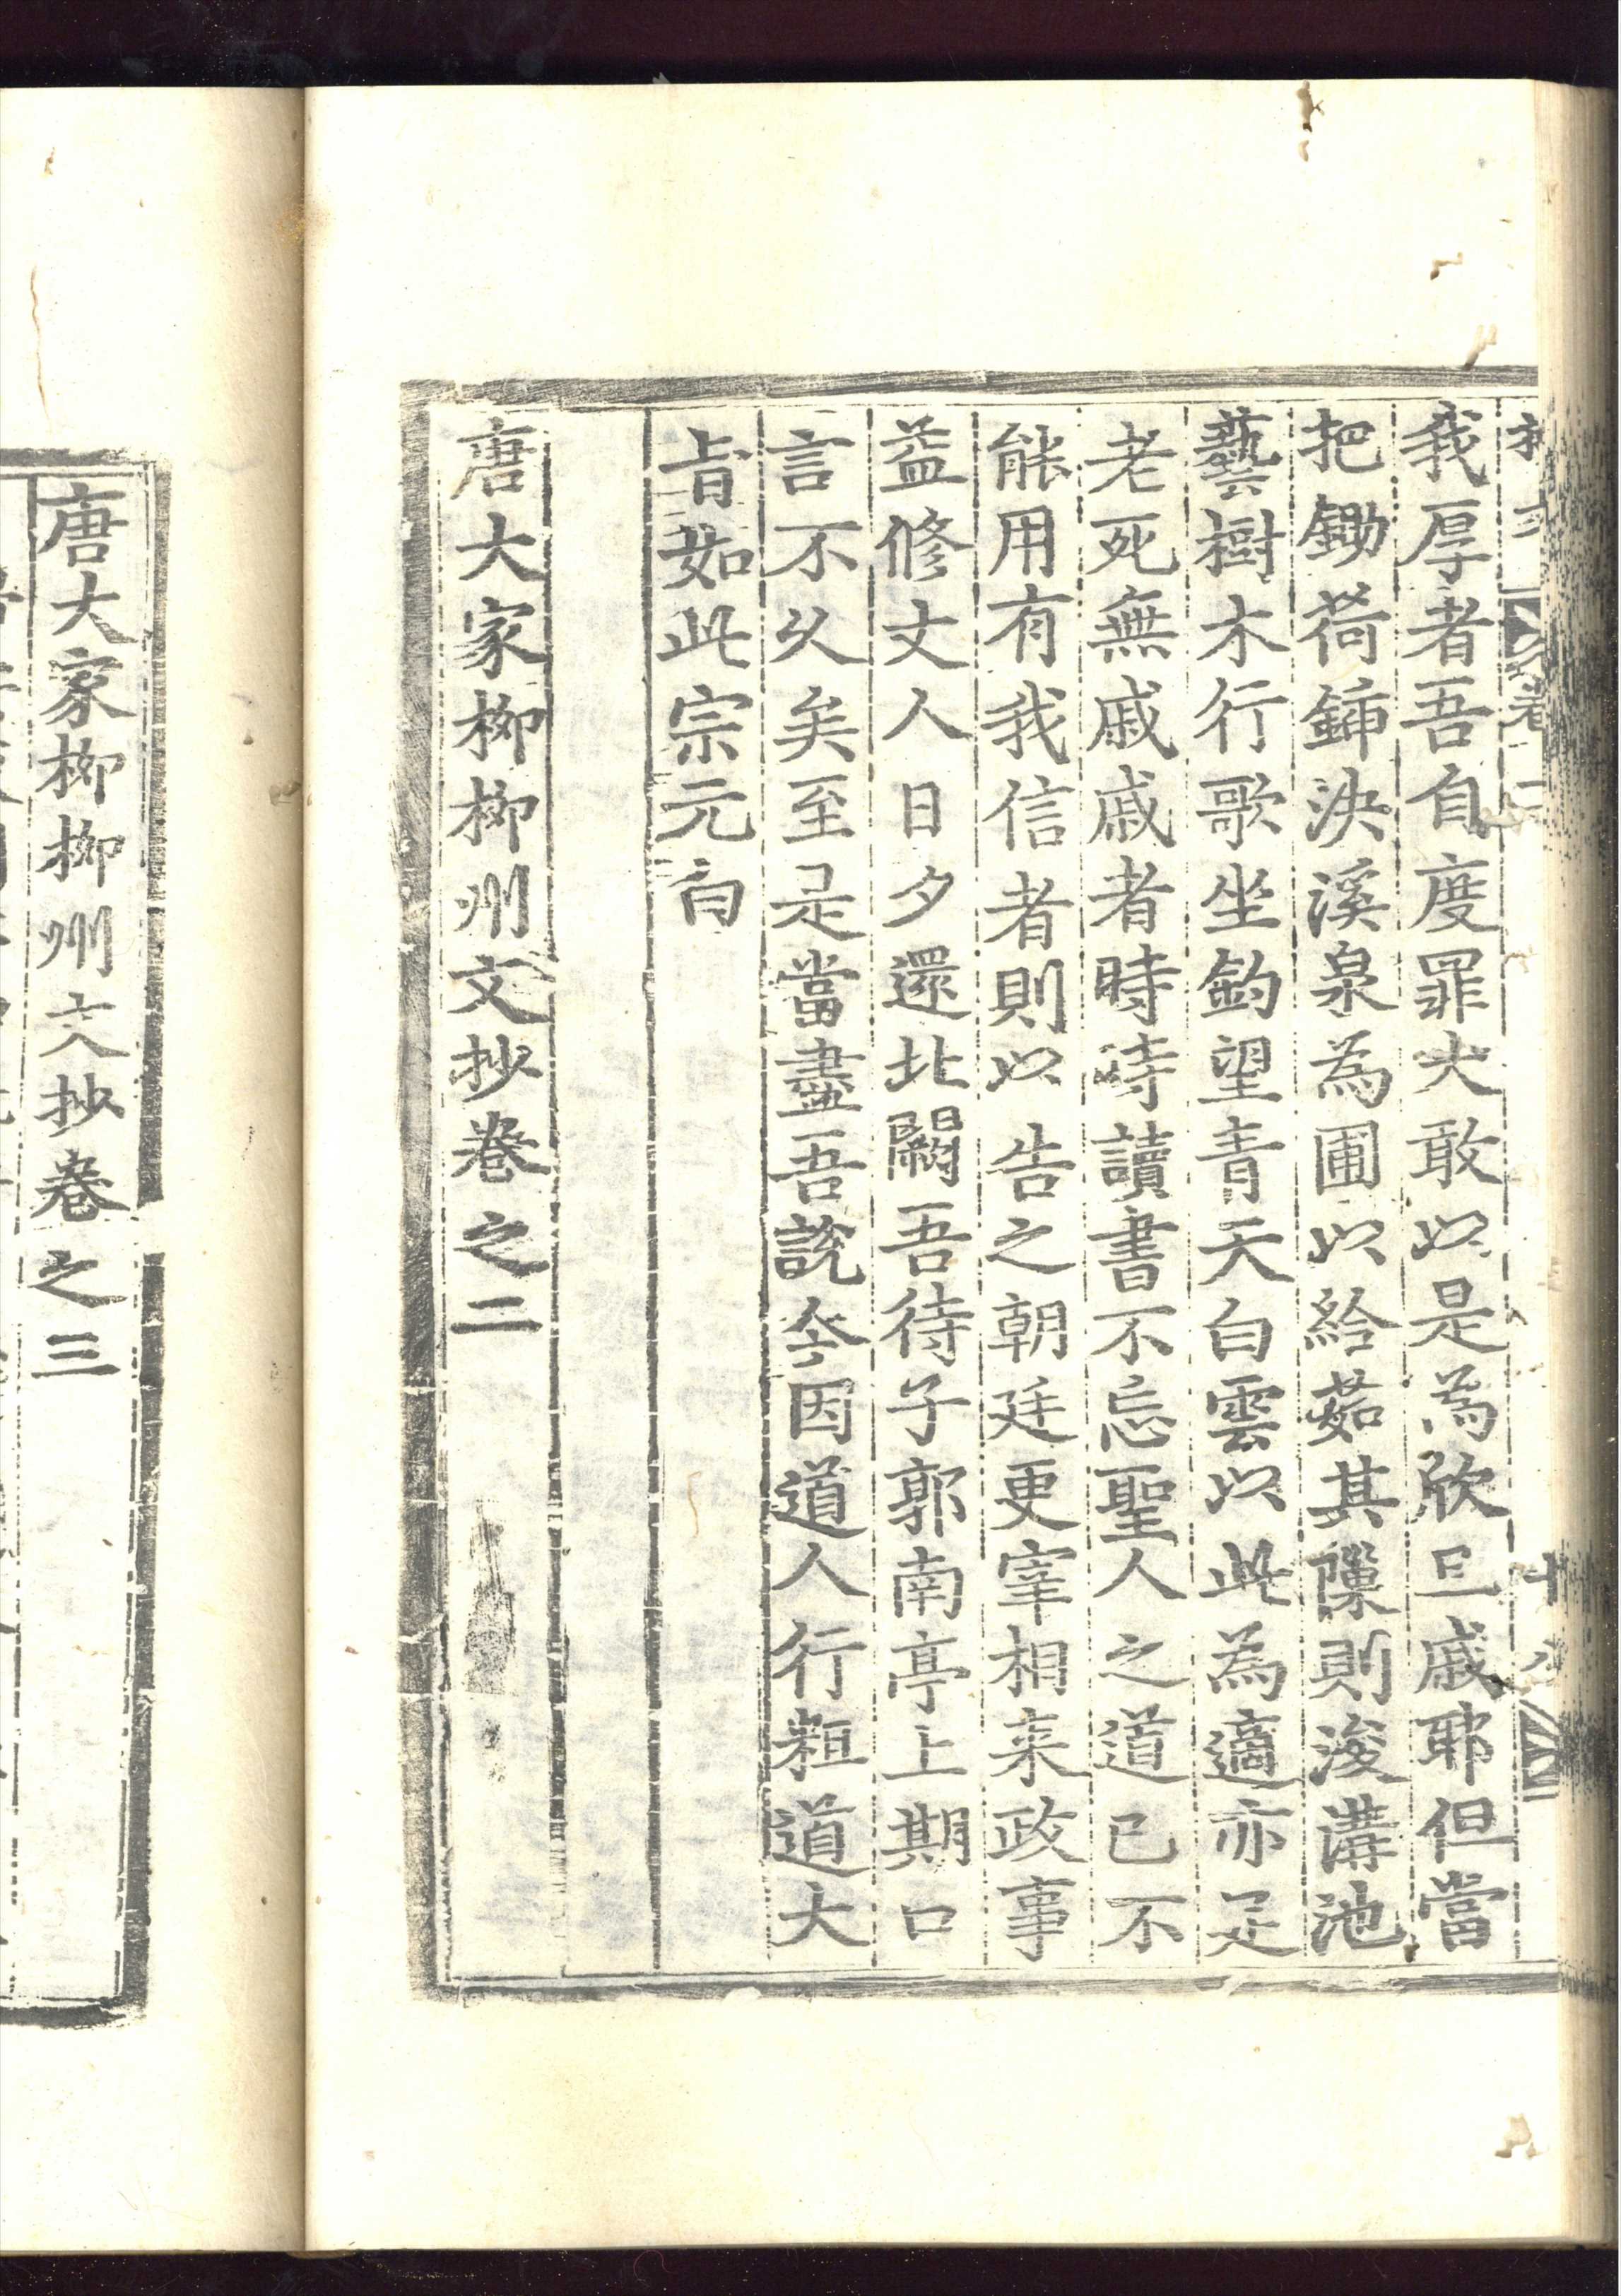 我厚者吾自度罪大敢以是為欣且戚耶但當
把鋤荷鍤決溪泉為圃以給茹其隟則浚溝池
藝樹木行歌坐釣望青天白雲以此為適亦足
老死無戚戚者時時讀書不忘聖人之道已不
能用有我信者則以告之朝廷更宰相来政事
益修丈人日夕還北闕吾待子郭南亭上期口
言不久矣至是當盡吾說今因道人行粗道大
㫖如此宗元白
唐大家柳柳州文抄卷之二
唐大家柳柳州文抄卷之三